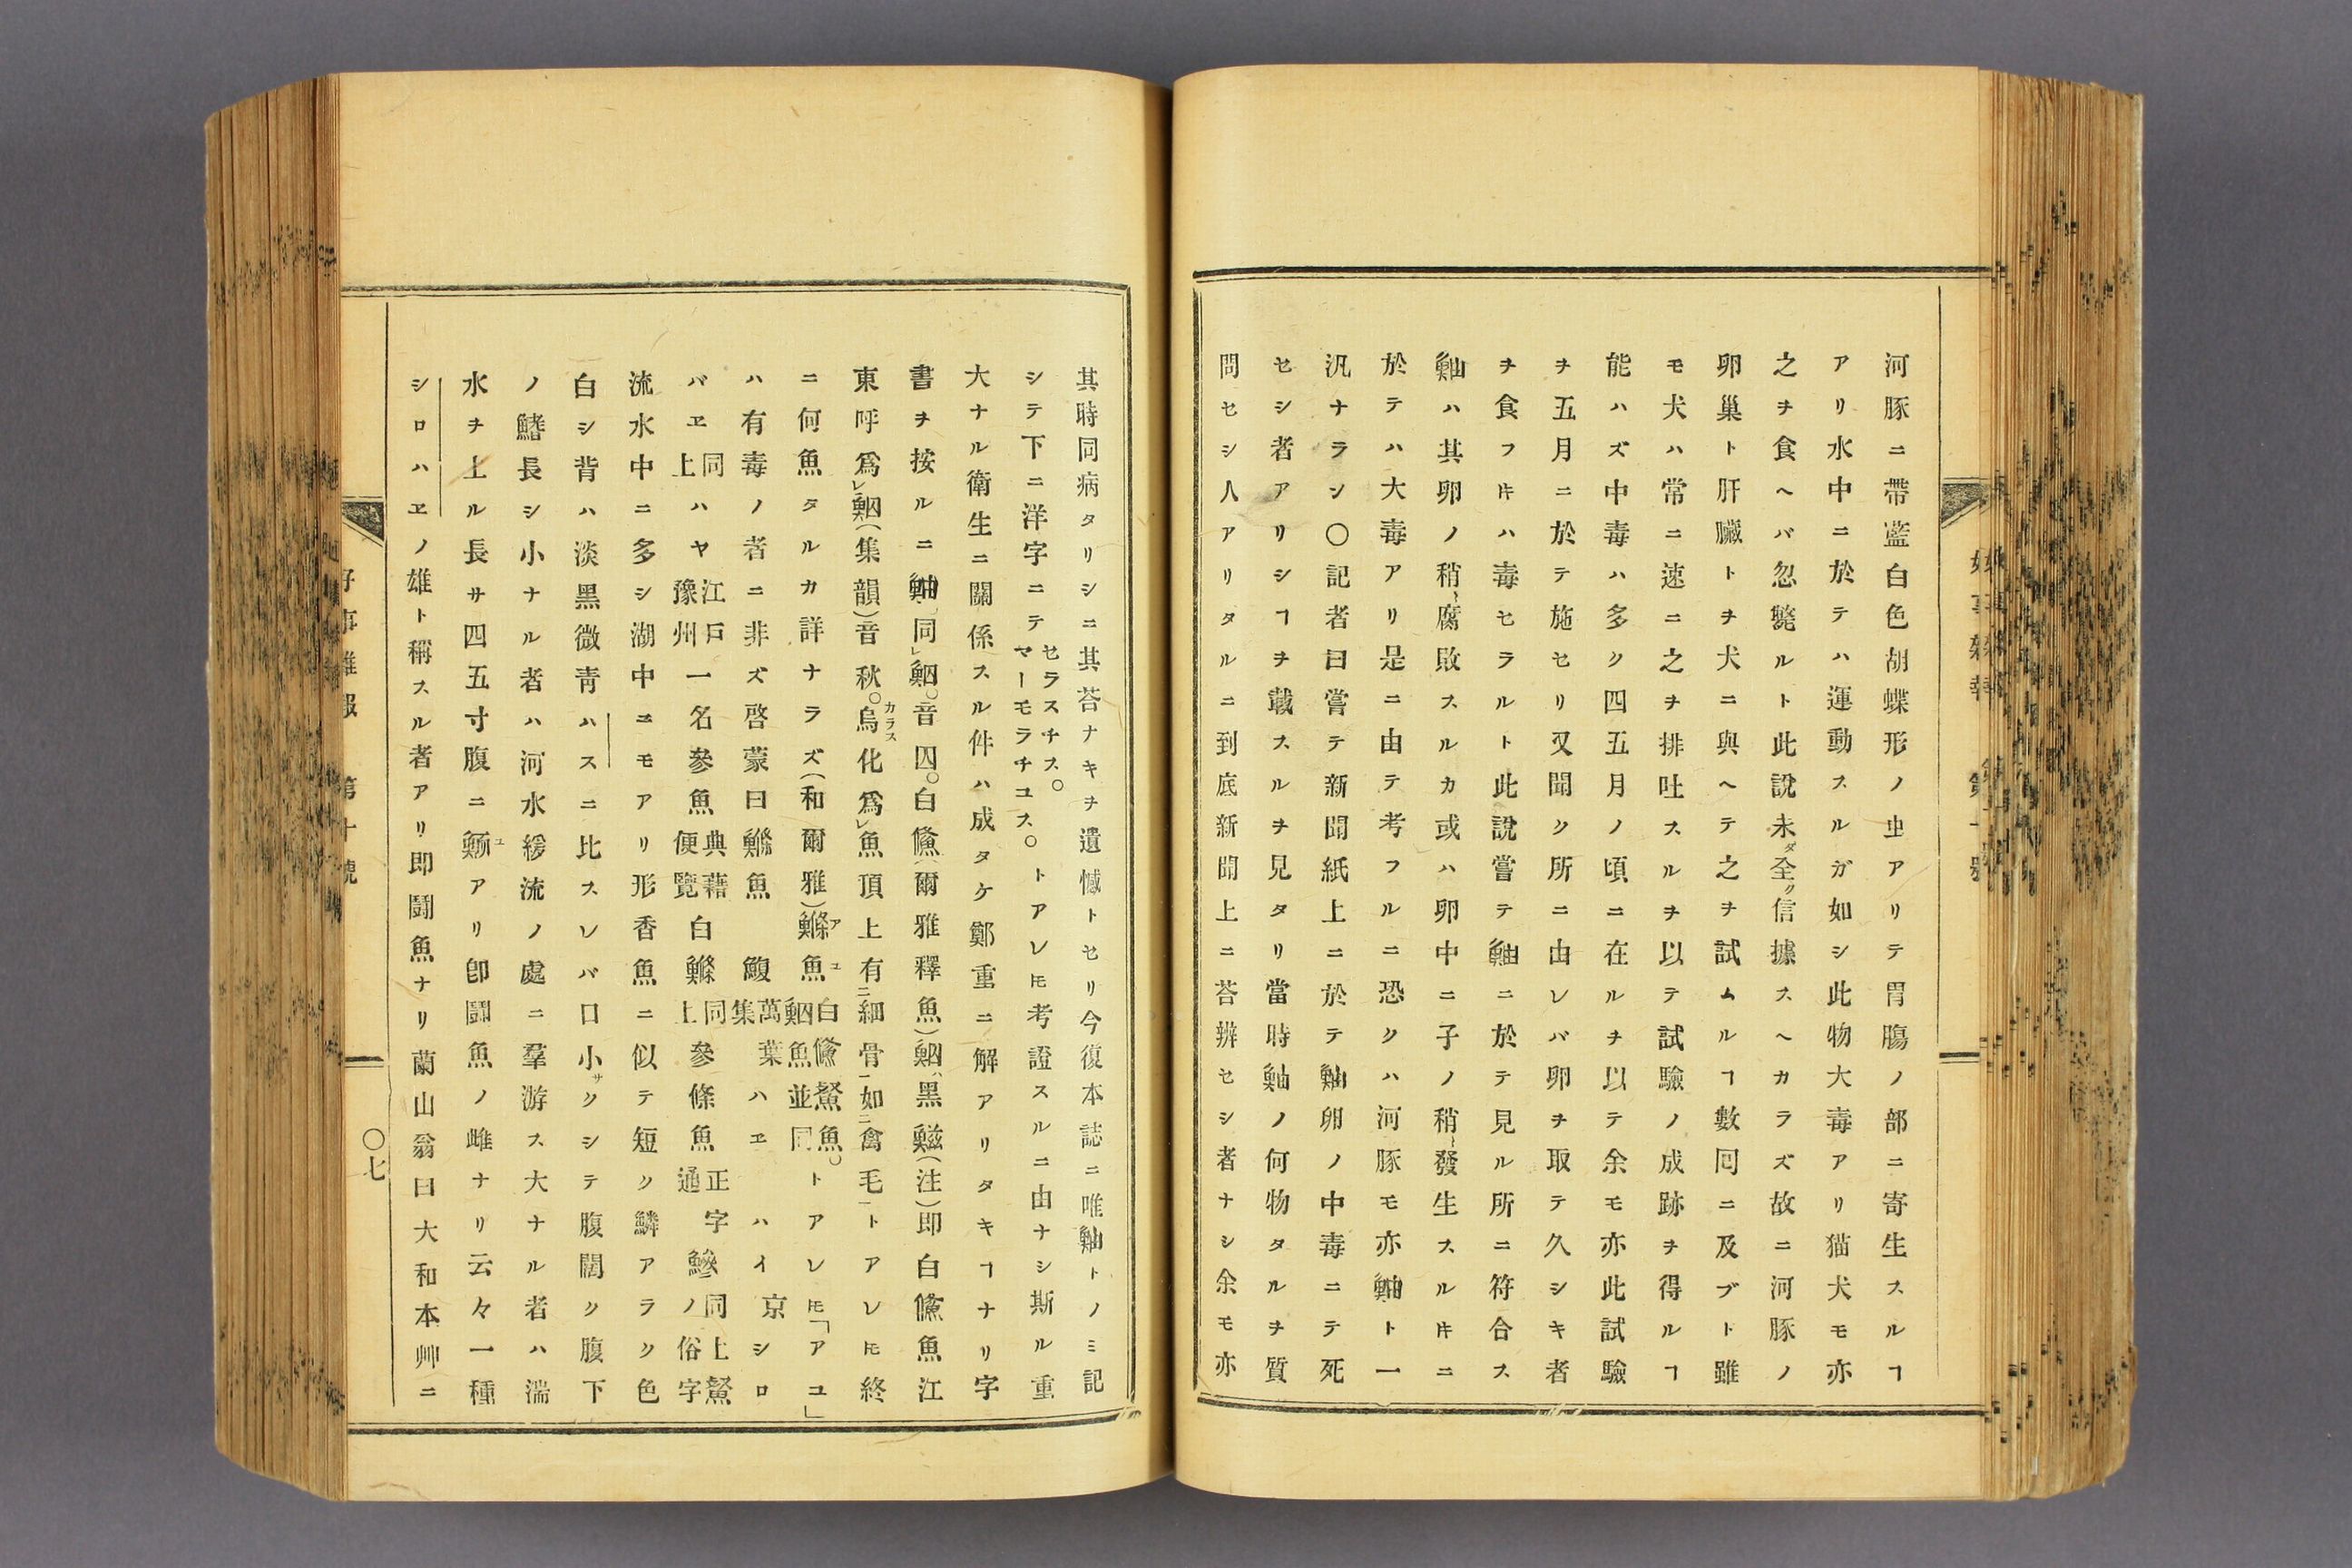 河豚ニ帶藍白色胡蝶形ノ虫アリテ胃膓ノ部ニ寄生スルヿ
アリ水中ニ於テハ運動スルガ如シ此物大毒アリ猫犬モ亦
之ヲ食ヘバ忽斃ルト此說未ダ全ク信據スヘカラズ故ニ河豚ノ
卵巢ト肝臟トヲ犬ニ與ヘテ之ヲ試ムルヿ數囘ニ及ブト雖
モ犬ハ常ニ速ニ之ヲ排吐スルヲ以テ試驗ノ成跡ヲ得ルヿ
能ハズ中毒ハ多ク四五月ノ頃ニ在ルヲ以テ余モ亦此試驗
ヲ五月ニ於テ施セリ又聞ク所ニ由レバ卵ヲ取テ久シキ者
ヲ食フ𪜈ハ毒セラルト此說嘗テ鮋ニ於テ見ル所ニ符合ス
鮋ハ其卵ノ稍腐敗スルカ或ハ卵中ニ子ノ稍發生スル𪜈ニ
於テハ大毒アリ是ニ由テ考フルニ恐クハ河豚モ亦鮋ト一
汎ナラン〇記者曰嘗テ新聞紙上ニ於テ鮋卵ノ中毒ニテ死
セシ者アリシヿヲ載スルヲ見タリ當時鮋ノ何物タルヲ質
問セシ人アリタルニ到底新聞上ニ荅辨セシ者ナシ余モ亦
好事雜報 第十號
其時同病タリシニ其荅ナキヲ遺憾トセリ今復本誌ニ唯鮋トノミ記
シテ下ニ洋字ニテセラスチス。マーモラチユス。トアレ𪜈考證スルニ由ナシ斯ル重
大ナル衛生ニ關係スル件ハ成タケ鄭重ニ解アリタキヿナリ字
書ヲ按ルニ鮋同レ䱁。音囚。白鯈(爾雅釋魚)䱁ハ黑鰦(注)即白鯈魚江
東呼爲レ䱁(集韻)音秋。烏カラス化爲レ魚頂上有ニ細骨一如ニ禽毛一トアレ𪜈終
ニ何魚タルカ詳ナラズ(和爾雅)鰷魚アユ白鯈鮺魚。䱁魚並同トアレ𪜈「アユ」
ハ有毒ノ者ニ非ズ啓蒙曰鰷魚 鰒萬葉集ハヱ ハイ京シロ
バヱ同上ハヤ江戸豫州一名參魚典藉便覽白鰷同上參條魚正字通鰺ノ同上鮺俗字
流水中ニ多シ湖中ニモアリ形香魚ニ似テ短ク鱗アラク色
白シ背ハ淡黑微靑ハスニ比スレバ口小サクシテ腹闊ク腹下
ノ鰭長シ小ナル者ハ河水緩流ノ處ニ羣游ス大ナル者ハ湍
水ヲ上ル長サ四五寸腹ニアリ卽鬪魚ノ雌ナリ云々一種
シロハヱノ雄ト稱スル者アリ即鬪魚ナリ蘭山翁曰大和本艸ニ
好事雜報 第十號
〇七